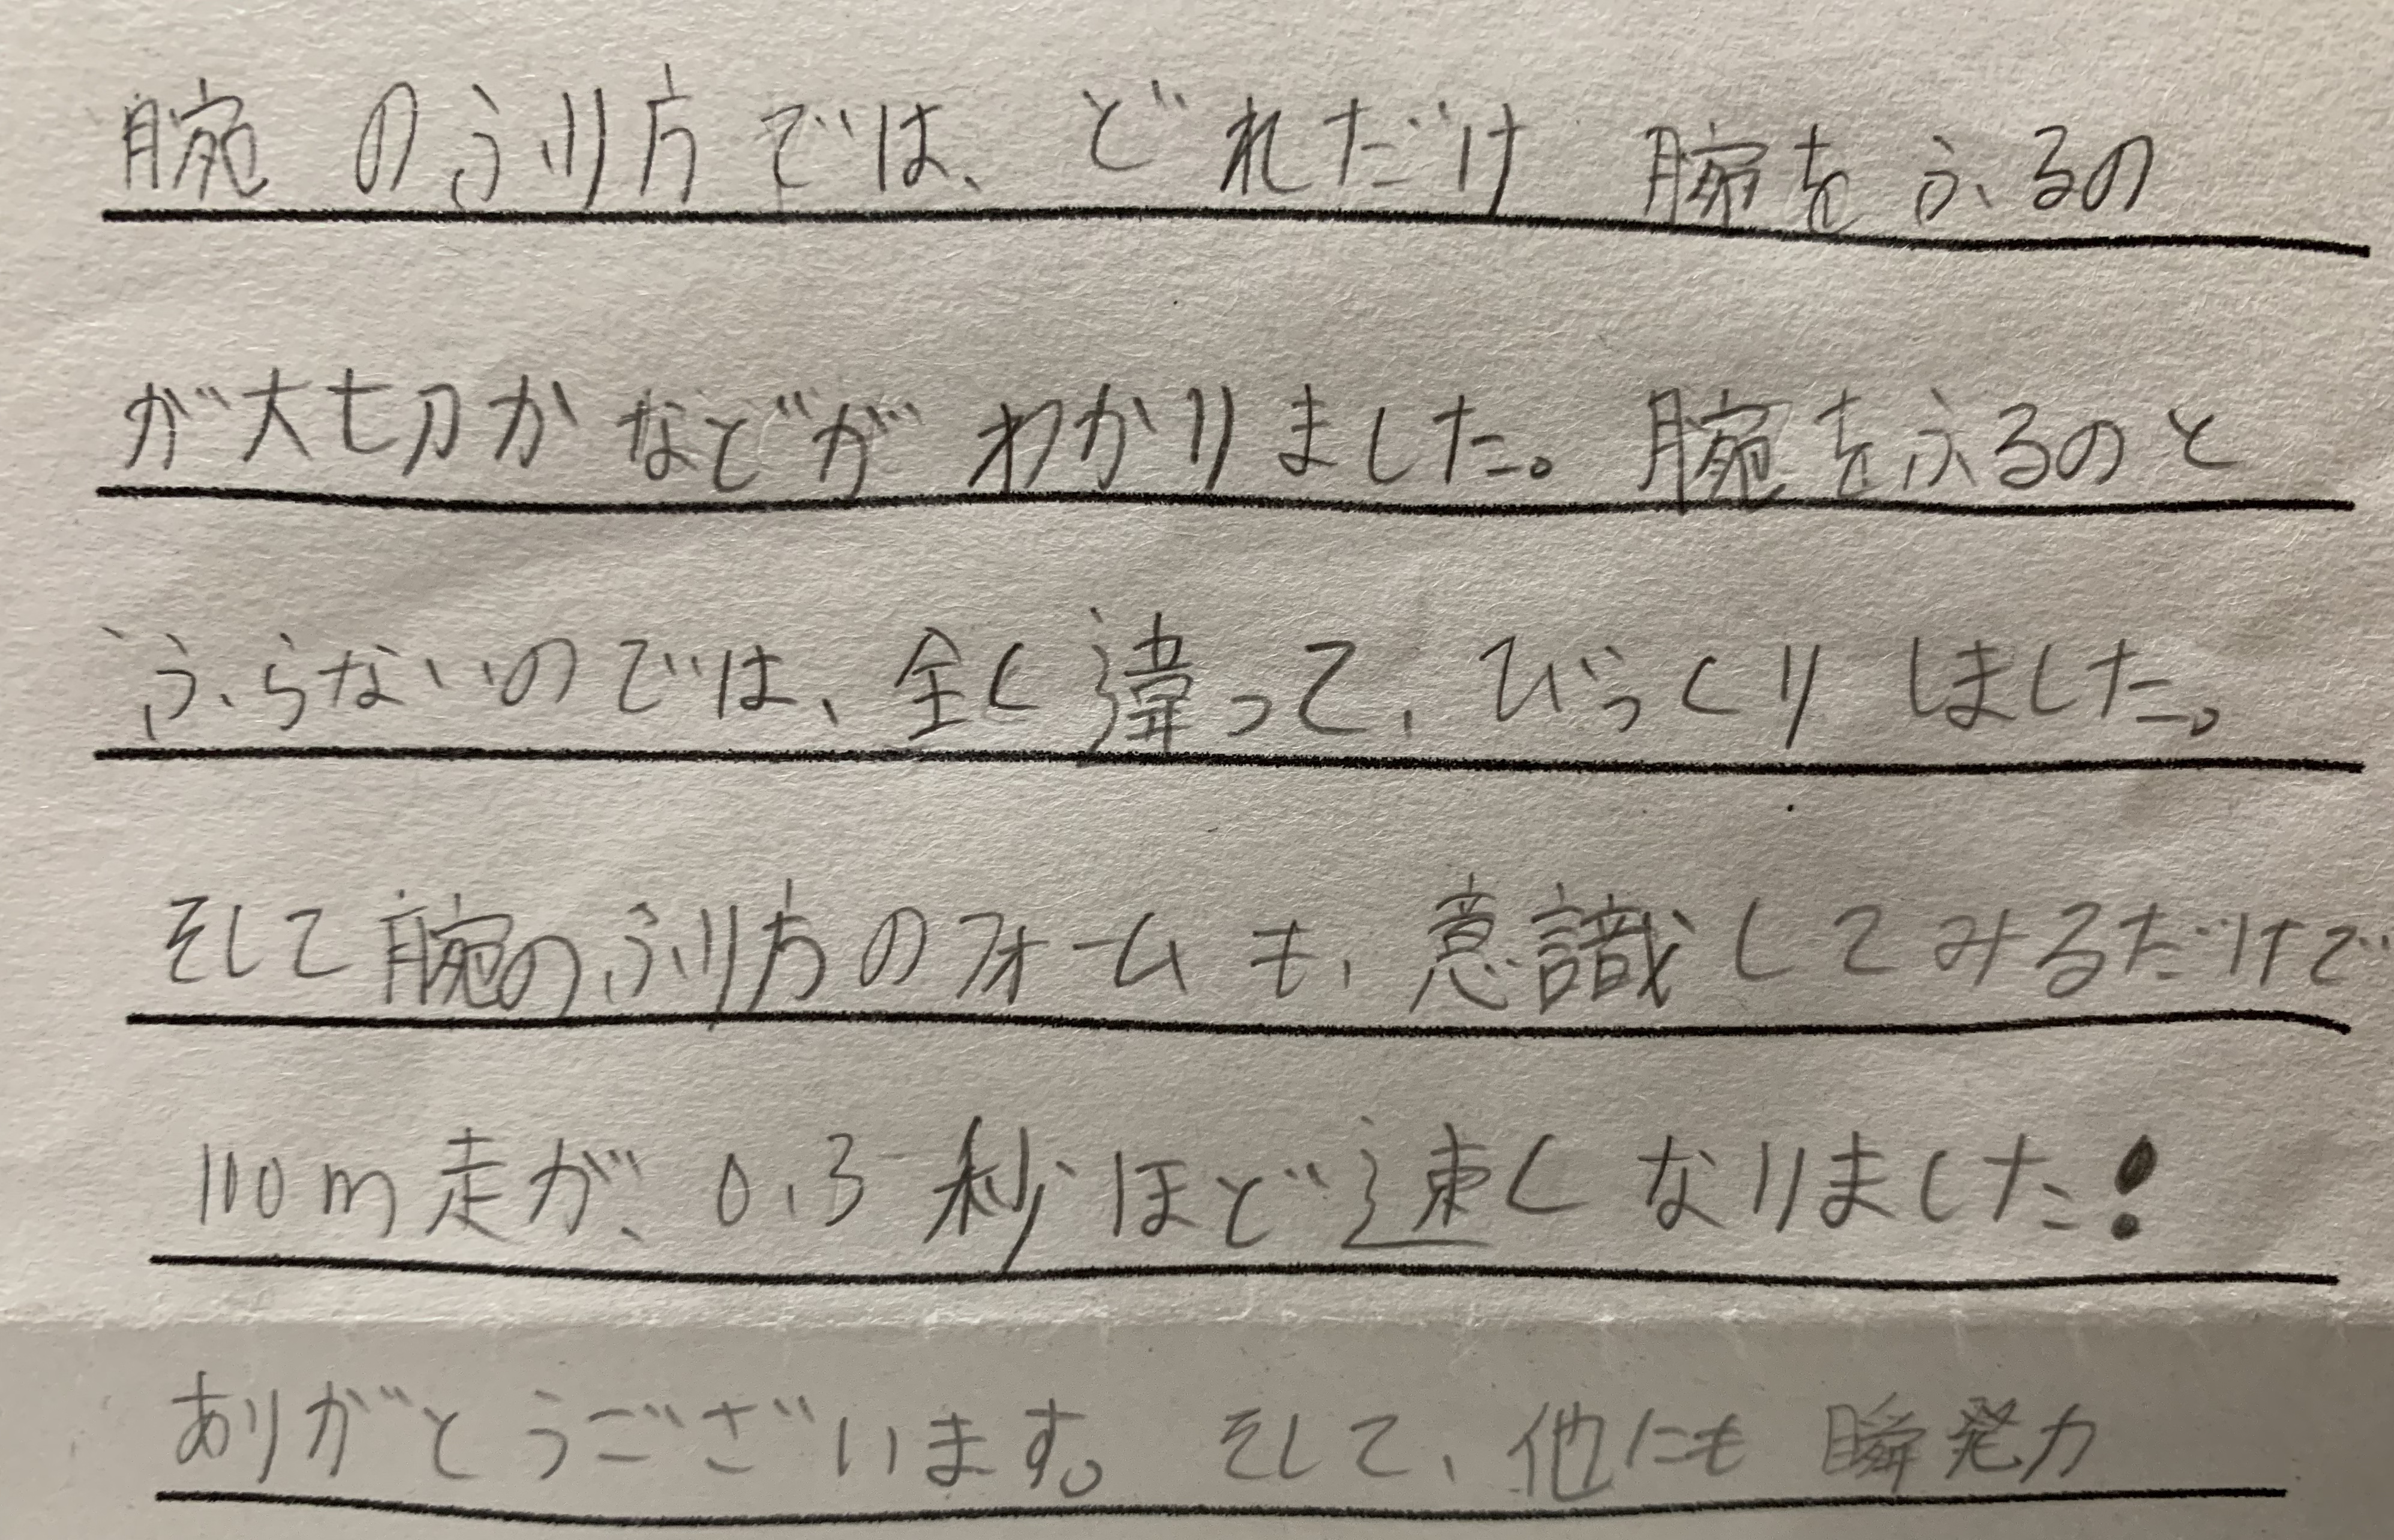 腕のふり方では、どれだけ腕をふるの
が大切かなどがわかりました。腕をふるのと
ふらないのでは、全く違って、びっくりしました。
そして腕のふり方のフォームも、意識してみるだけで
100m走が、0.3秒ほど速くなりました!
ありがとうございます。そして、他にも瞬発力